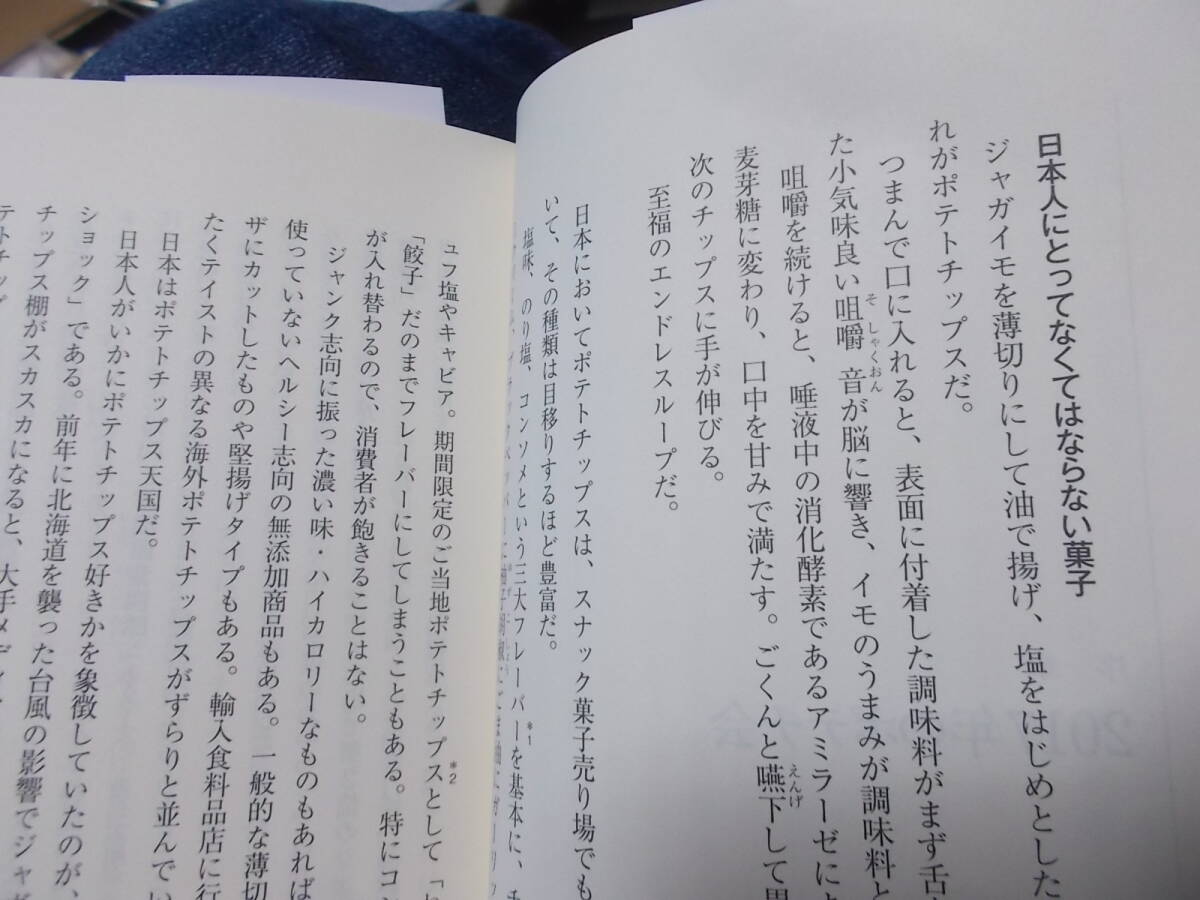 日本人にとってなくてはならない菓子
ジャガイモを薄切りにして油で揚げ、塩をはじめとした
れがポテトチップスだ。
つまんで口に入れると、表面に付着した調味料がまず舌
た小気味良い咀嚼音が脳に響き、イモのうまみが調味料と
そしゃくおん
咀嚼を続けると、唾液中の消化酵素であるアミラーゼによ
麦芽糖に変わり、口中を甘みで満たす。ごくんと嚥下して
えんげ
次のチップスに手が伸びる。
至福のエンドレスループだ。
日本においてポテトチップスは、スナック菓子売り場でも
いて、その種類は目移りするほど豊富だ。
塩味、のり塩、コンソメという三大フレーバーを基本に、チ
*1
ュフ塩やキャビア。期間限定のご当地ポテトチップスとして
*2
「餃子」だのまでフレーバーにしてしまうこともある。特にコン
が入れ替わるので、消費者が飽きることはない。
ジャンク志向に振った濃い味・ハイカロリーなものもあれば
使っていないヘルシー志向の無添加商品もある。一般的な薄切
ザにカットしたものや堅揚げタイプもある。輸入食料品店に行
たくテイストの異なる海外ポテトチップスがずらりと並んでい
日本はポテトチップス天国だ。
日本人がいかにポテトチップス好きかを象徴していたのが、
ショック」である。前年に北海道を襲った台風の影響でジャガ
チップス棚がスカスカになると、大手メディア
テトチップ